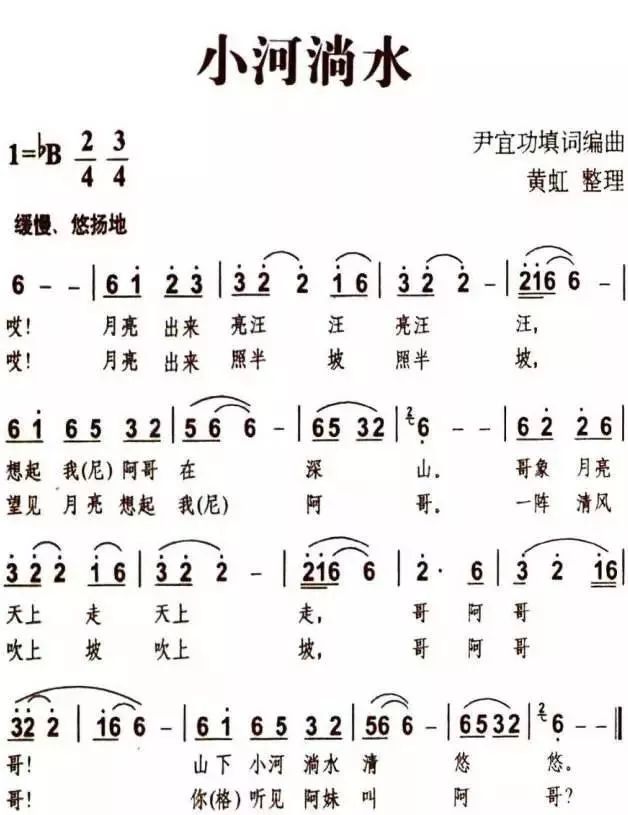 小河淌水
1=♭B 2/4 3/4
尹宜功填词编曲
黄虹 整理
缓慢、悠扬地
6 - - | 6 1̇ 2̇ 3̇ | 3̇ 2̇ 2̇ 1̇ 6 | 3̇ 2̇ 2̇ - | 2̇1̇6 6 - |
哎! 月亮 出来 亮汪 汪 亮汪 汪,
哎! 月亮 出来 照半 坡 照半 坡,
6 1̇ 6 5 3 2 | 5 6 6 - | 6 5 3 2 | 6̣ - | 6 2̇ 2̇ 6 |
想起 我(尼) 阿哥 在 深 山。 哥象 月亮
望见 月亮 想起 我(尼) 阿 哥。 一阵 清风
3̇ 2̇ 2̇ 1̇ 6 | 3̇ 2̇ 2̇ - | 2̇1̇6 6 - | 2̇· 6 | 3̇ 2̇ 1̇6 |
天上 走 天上 走, 哥 阿哥
吹上 坡 吹上 坡, 哥 阿哥
3̇2̇ 2̇ - | 1̇6 6 - | 6 1̇ 6 5 3 2 | 56 6 - | 6532 | 6̣ - - ‖
哥! 山下 小河 淌水 清 悠 悠。
哥! 你(格) 听见 阿妹 叫 阿 哥?